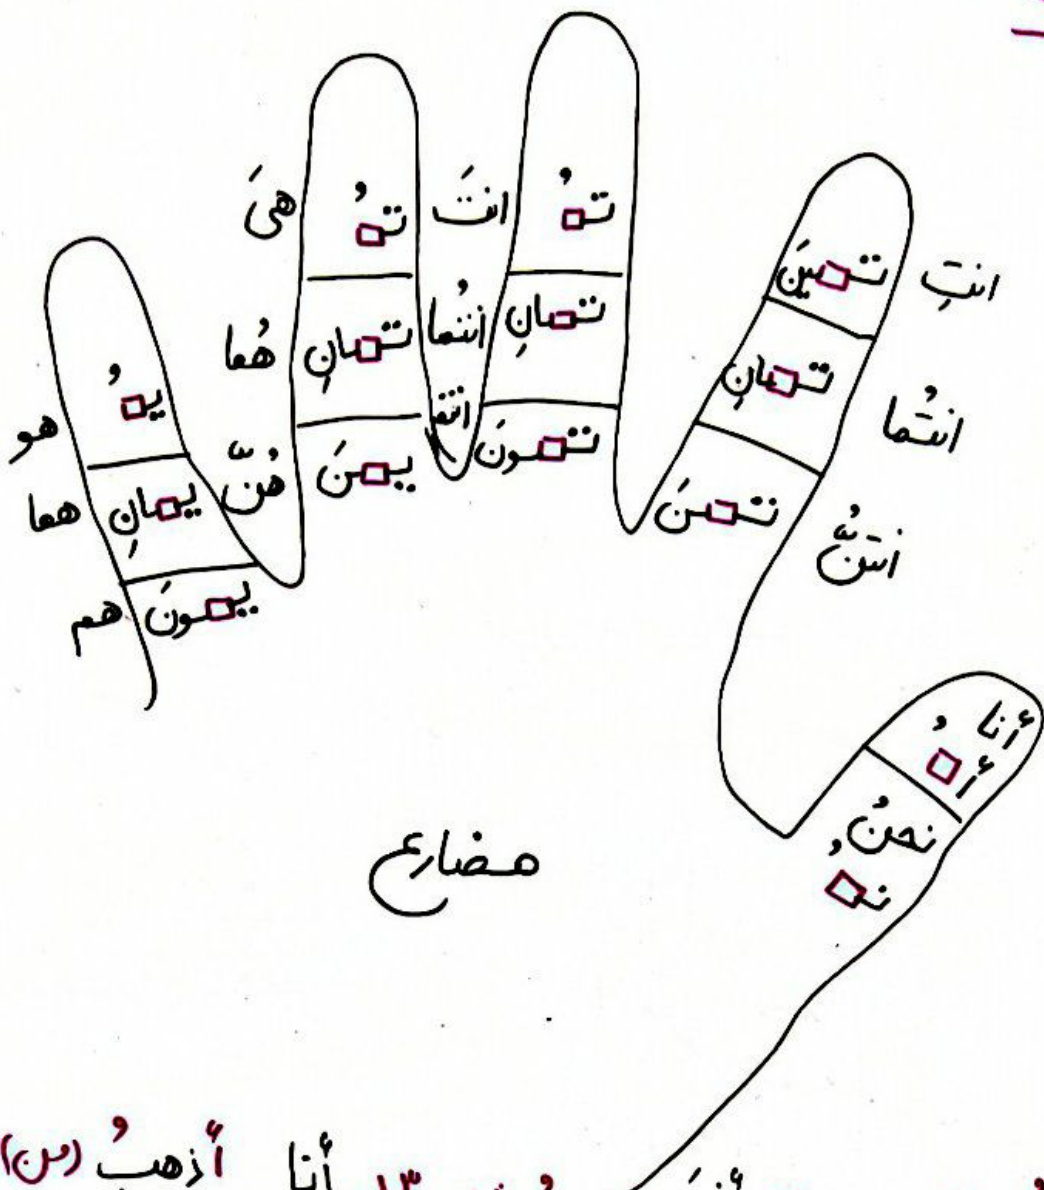 هو
يـ□ُ
هما
يـ□ـانِ
هم
يـ□ـونَ
هیَ
تـ□ُ
هُما
تـ□ـانِ
هُنّ
یـ□ـنَ
انتَ
تـ□ُ
انتُما
تـ□ـانِ
تـ□ـونَ
انتِ
تـ□ـینَ
انتُما
تـ□ـانِ
انتنُّ
تـ□ـنَ
أنا
أ□ُ
نحنُ
نـ□ُ
مضارع
أنا أذهبُ (من)
۱۳